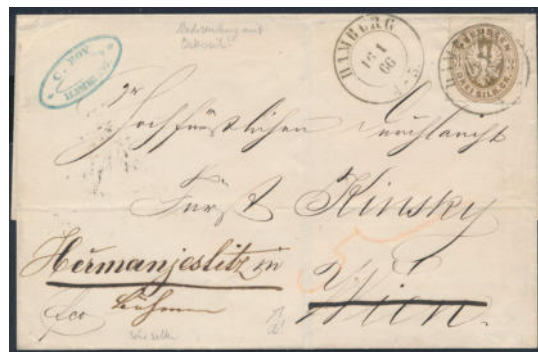 C. BOY
HAMBURG
HAMBURG
16 1
66
PREUSSEN
DREI SILB. GR.
Sr
Hochfürstlichen Durchlaucht
Fürst Kinsky
Hermanjeslitz in
Böhmen
Wien.
fco